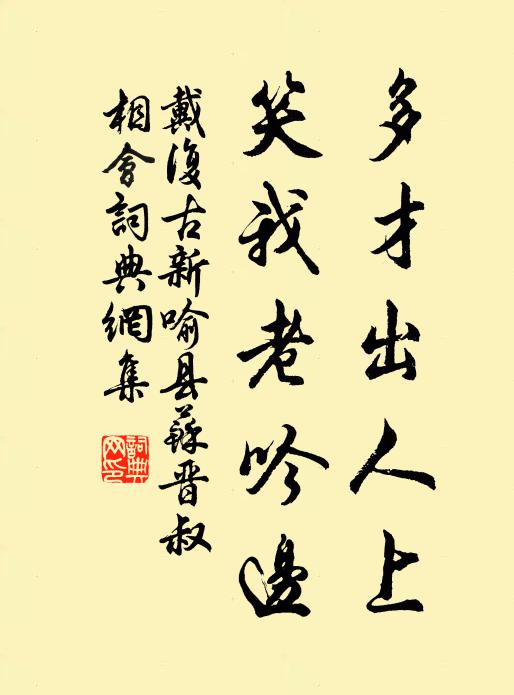 多才出人上
笑我老吟邊
戴復古新喻县蘇晋叔
相會詞典網集
詞典
网印